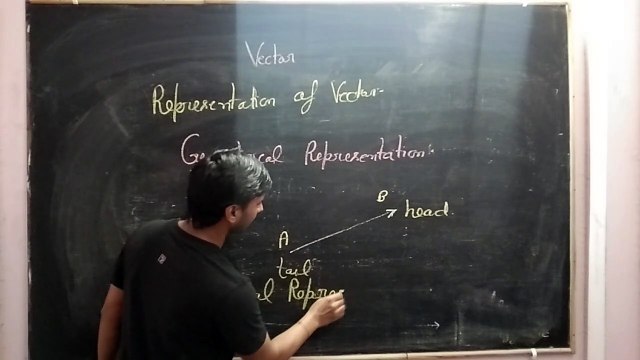 Vector
Representation of Vector.
Representation.
B
head.
A
tail